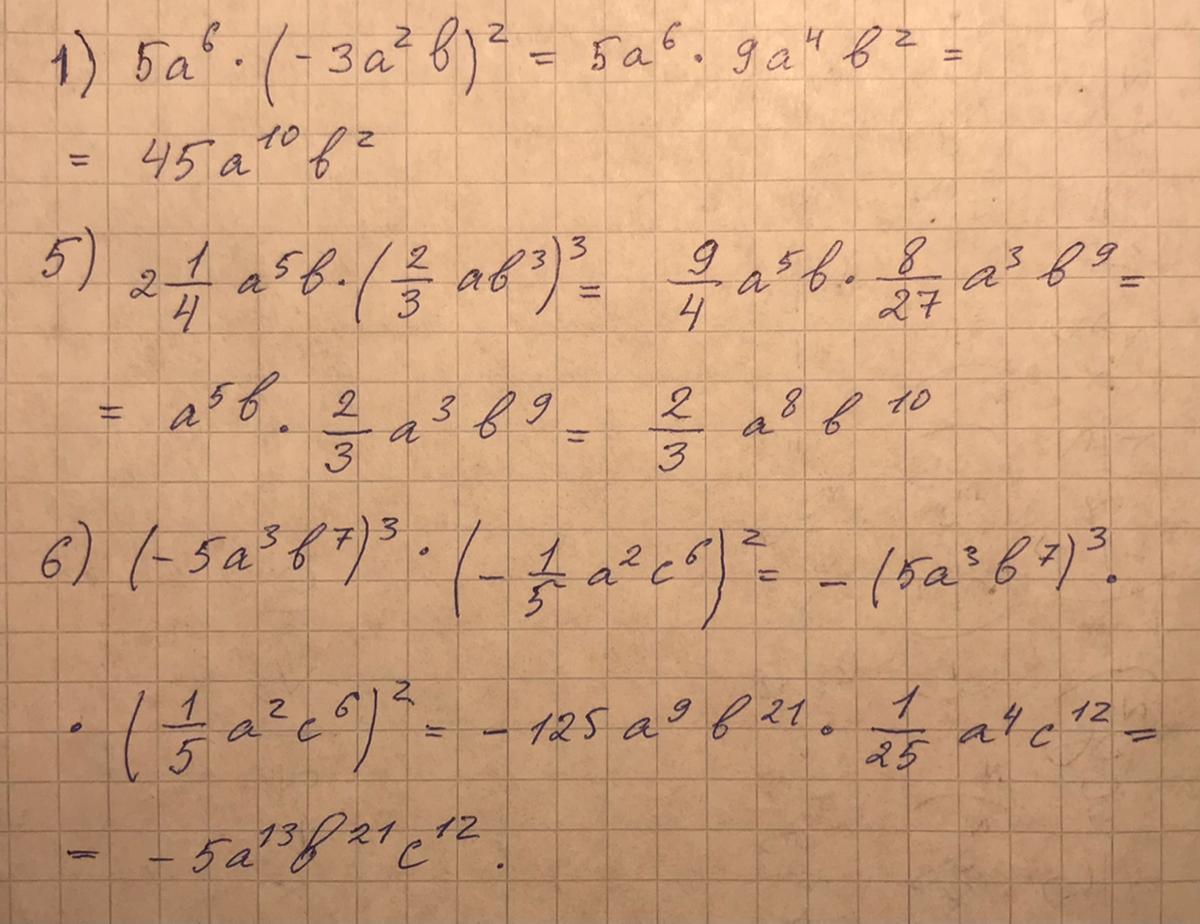 1) 5a⁶ · (-3a²b)² = 5a⁶ · 9a⁴b² =
= 45a¹⁰b²
5) 2 1/4 a⁵b · (2/3 ab³)³ = 9/4 a⁵b · 8/27 a³b⁹ =
= a⁵b · 2/3 a³b⁹ = 2/3 a⁸b¹⁰
6) (-5a³b⁷)³ · (-1/5 a²c⁶)² = -(5a³b⁷)³ ·
· (1/5 a²c⁶)² = -125a⁹b²¹ · 1/25 a⁴c¹² =
= -5a¹³b²¹c¹².